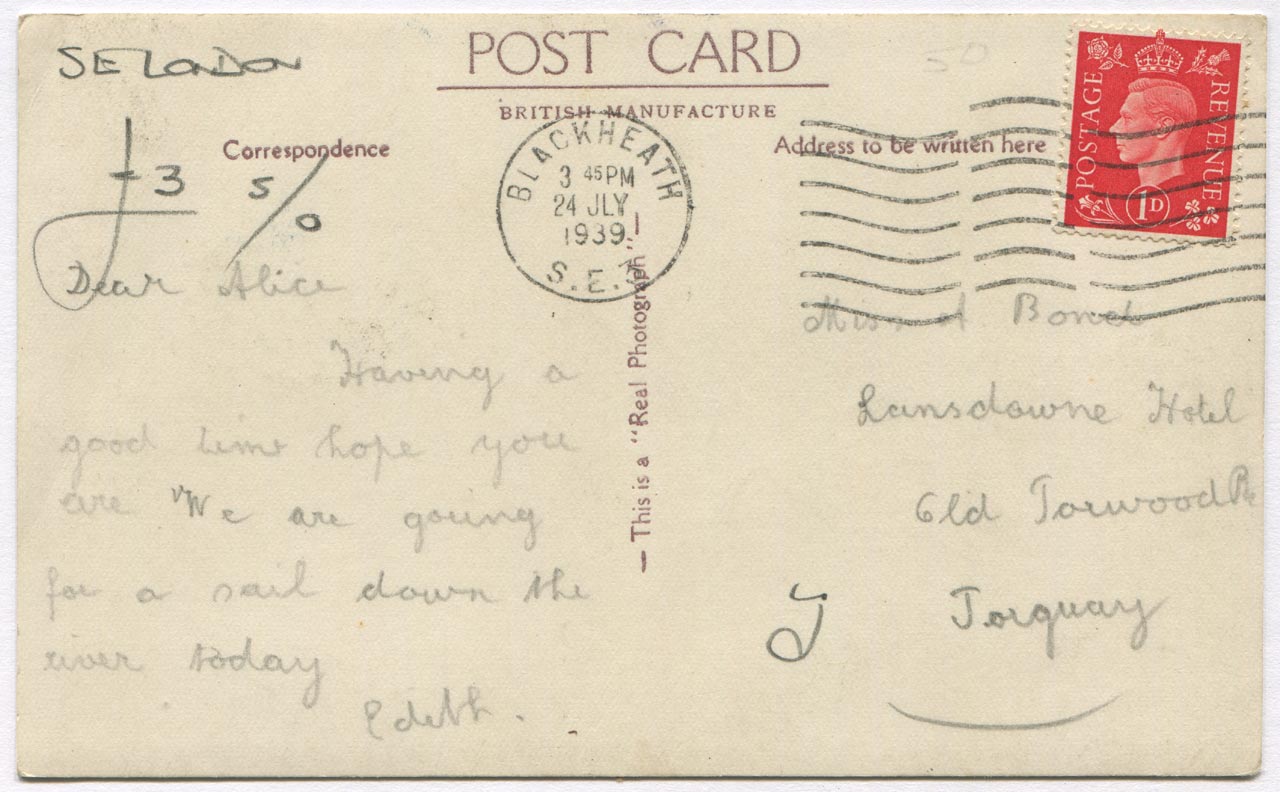 SE LONDON
POST CARD
BRITISH MANUFACTURE
50
Correspondence
Address to be written here
POSTAGE REVENUE
1D
BLACKHEATH
3 45PM
24 JLY
1939
S.E.3
£3 5/0
This is a "Real Photograph"
Dear Alice
Having a
good time hope you
are We are going
for a sail down the
river today
Edith.
Miss A
Lansdowne Hotel
Old Torwood Rd
Torquay